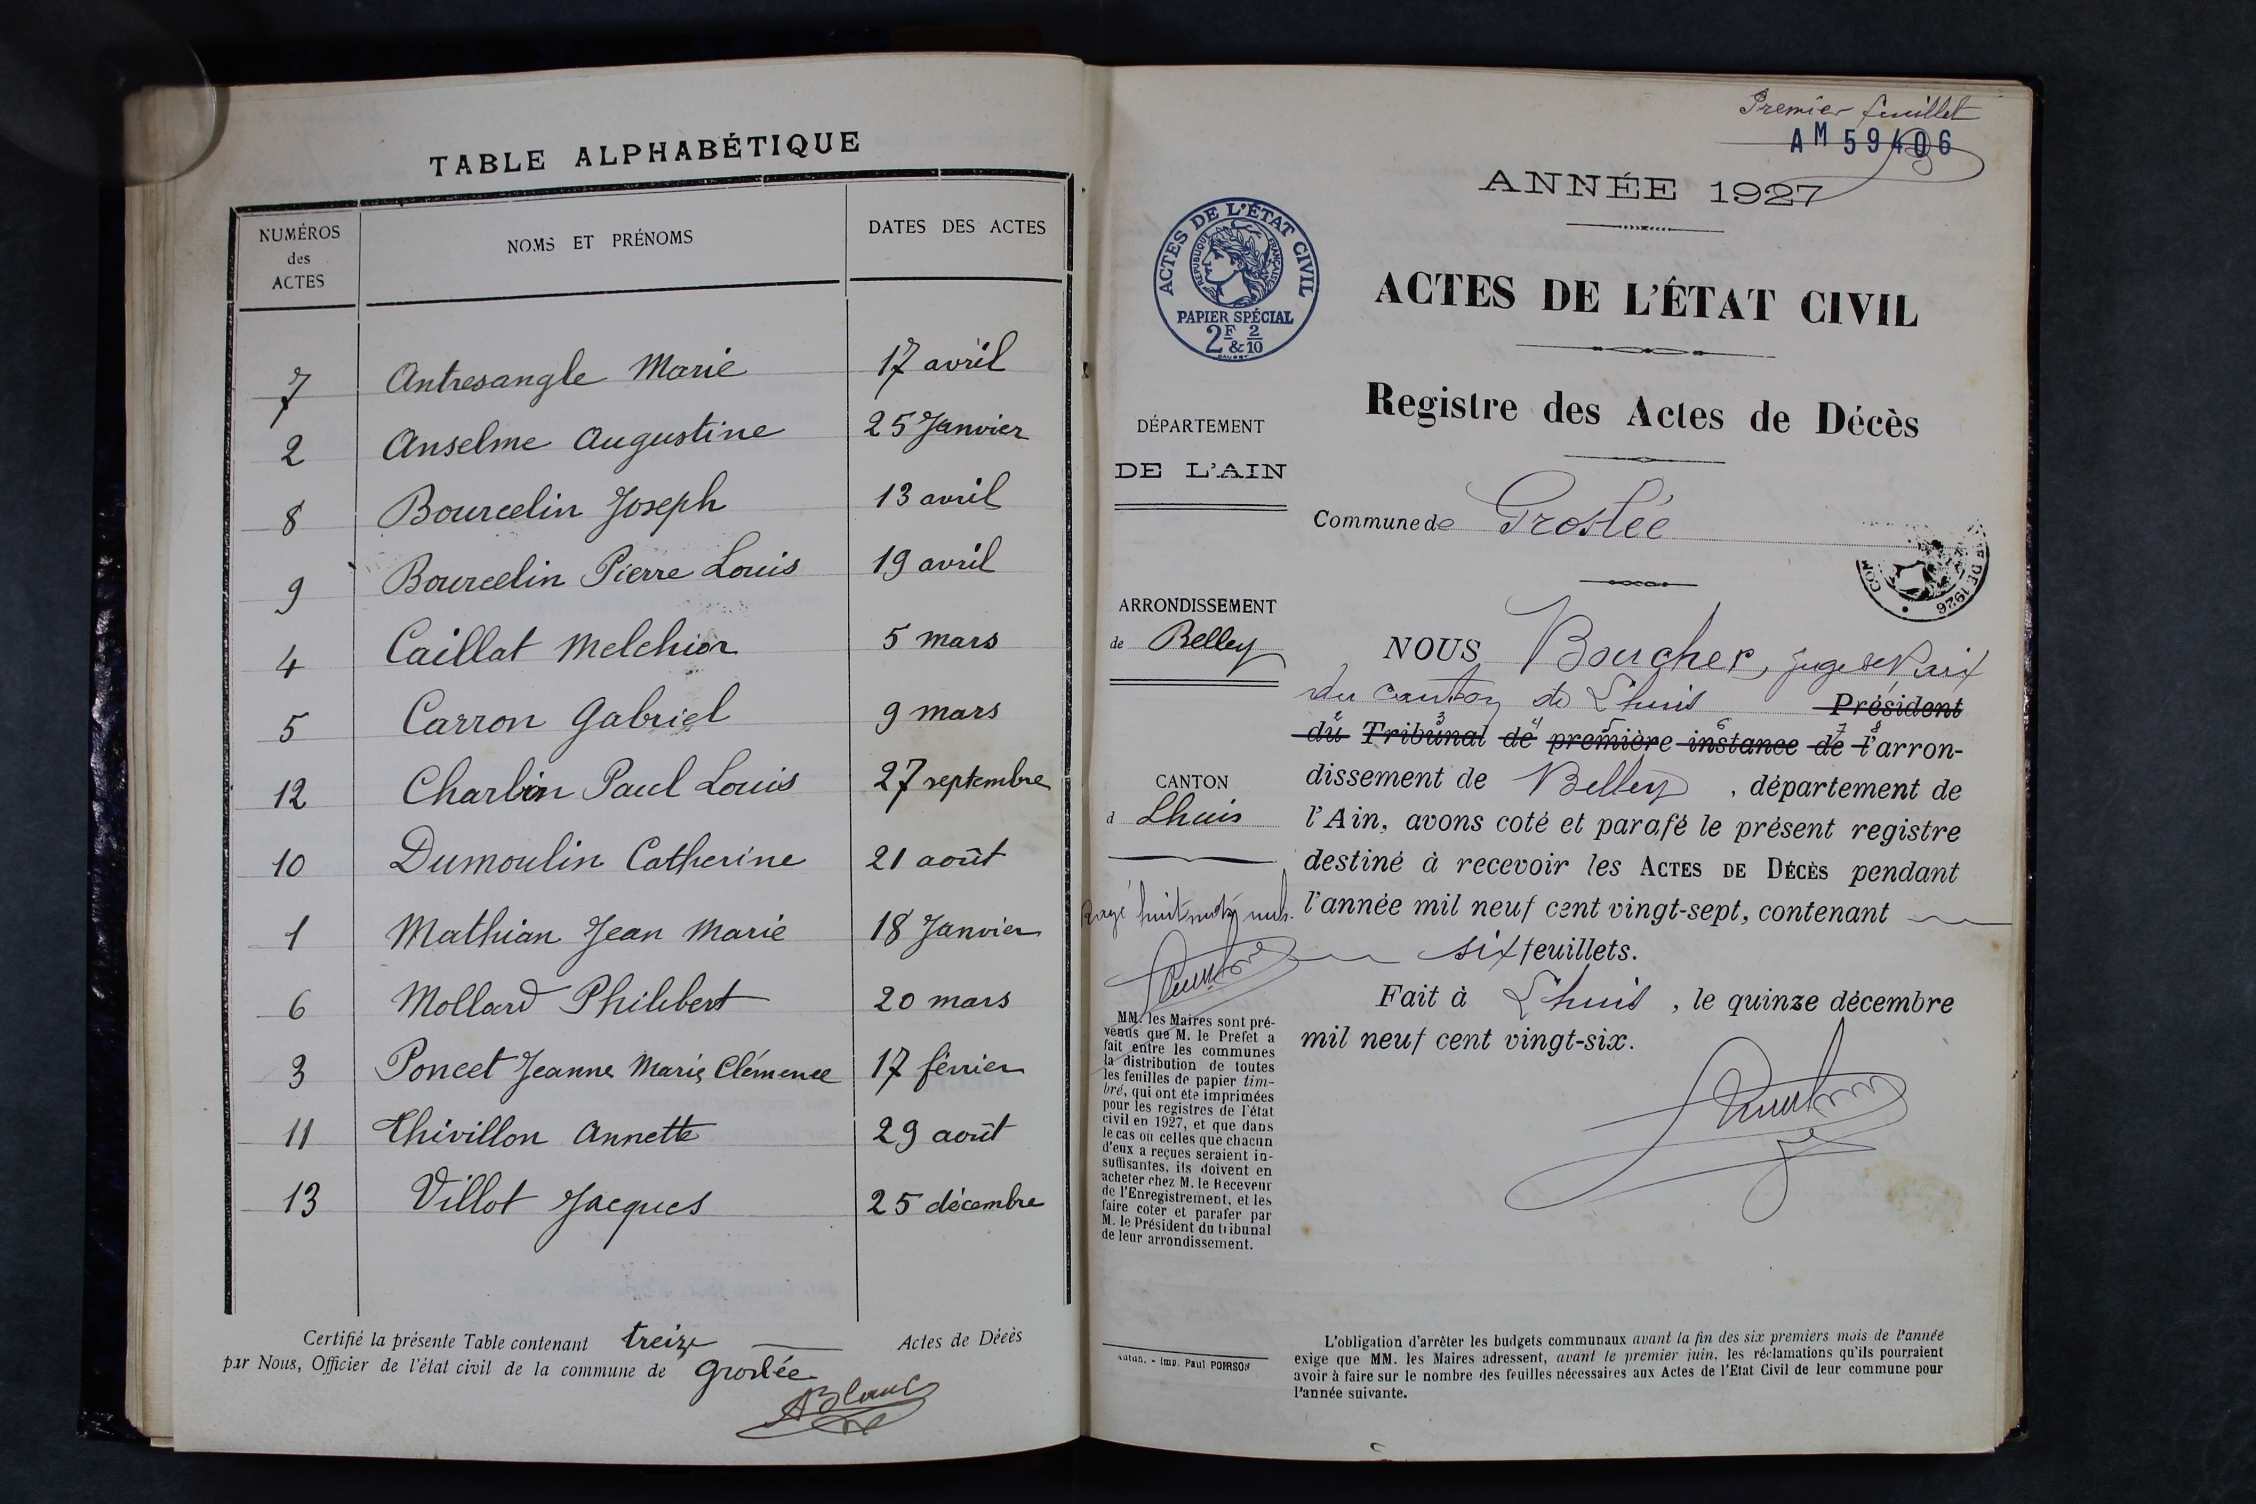 TABLE ALPHABÉTIQUE
NUMÉROS des ACTES
NOMS ET PRÉNOMS
DATES DES ACTES
7 Antresangle Marie 17 avril
2 Anselme Augustine 25 Janvier
8 Bourcelin Joseph 13 avril
9 Bourcelin Pierre Louis 19 avril
4 Caillat Melchior 5 mars
5 Carron Gabriel 9 mars
12 Charbin Paul Louis 27 septembre
10 Dumoulin Catherine 21 août
1 Mathian Jean Marie 18 Janvier
6 Mollard Philibert 20 mars
3 Poncet Jeanne Marie Clémence 17 février
11 Thivillon Annette 29 août
13 Villot Jacques 25 décembre
Certifié la présente Table contenant treize Actes de Décès
par Nous, Officier de l'état civil de la commune de Groslée
ABlanc
Premier feuillet
AM 59406
ANNÉE 1927
ACTES DE L'ÉTAT CIVIL
RÉPUBLIQUE FRANÇAISE
PAPIER SPÉCIAL
2F & 2/10
ACTES DE L'ÉTAT CIVIL
Registre des Actes de Décès
DÉPARTEMENT
DE L'AIN
Commune de Groslée
DE 1926
ARRONDISSEMENT
de Belley
CANTON
d Lhuis
NOUS Boucher, juge de Paix
du canton de Lhuis Président
du Tribunal de première instance de l'arron-
dissement de Belley, département de
l'Ain, avons coté et parafé le présent registre
destiné à recevoir les ACTES DE DÉCÈS pendant
l'année mil neuf cent vingt-sept, contenant
six feuillets.
Fait à Lhuis, le quinze décembre
mil neuf cent vingt-six.
Rayé huit mots nuls.
MM. les Maires sont pré-
venus que M. le Préfet a
fait entre les communes
la distribution de toutes
les feuilles de papier tim-
bré, qui ont été imprimées
pour les registres de l'état
civil en 1927, et que dans
le cas où celles que chacun
d'eux a reçues seraient in-
suffisantes, ils doivent en
acheter chez M. le Receveur
de l'Enregistrement, et les
faire coter et parafer par
M. le Président du tribunal
de leur arrondissement.
Autun. - Imp. Paul POIRSON
L'obligation d'arrêter les budgets communaux avant la fin des six premiers mois de l'année
exige que MM. les Maires adressent, avant le premier juin, les réclamations qu'ils pourraient
avoir à faire sur le nombre des feuilles nécessaires aux Actes de l'Etat Civil de leur commune pour
l'année suivante.